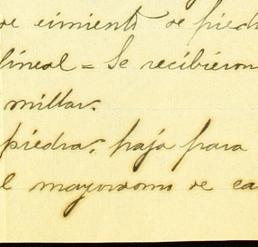 de cimiento de pied
lineal = Se recibieron
millar.
piedra, paja para
l mayordomo de ca